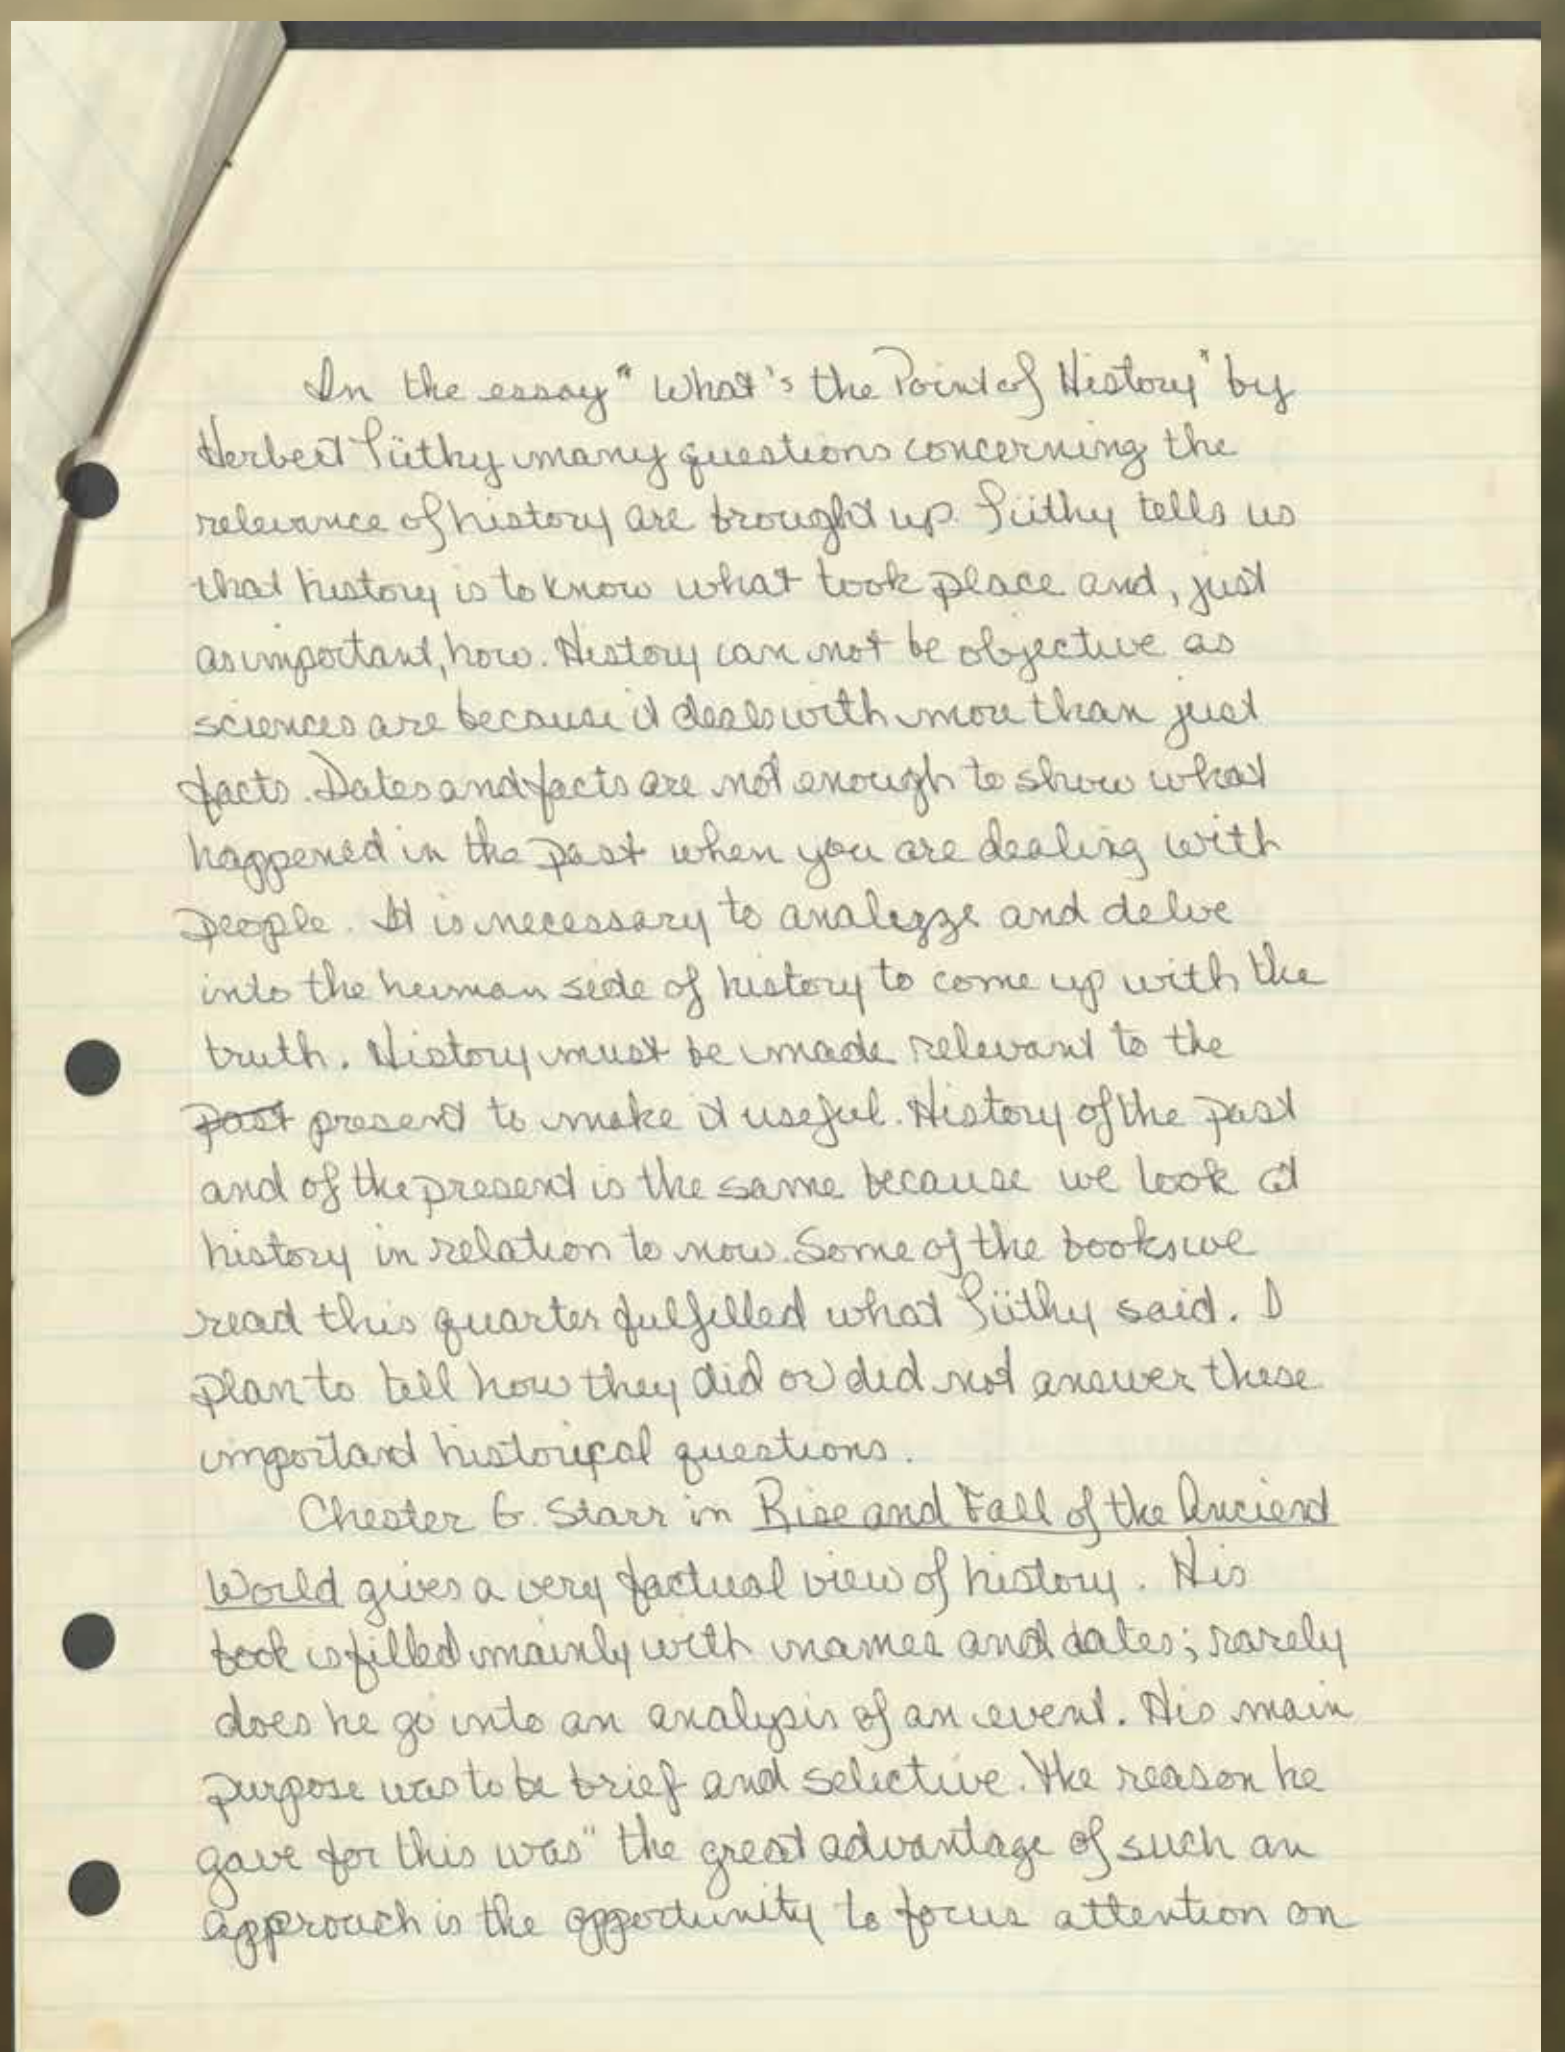 In the essay "What's the Point of History" by
Herbert Lüthy many questions concerning the
relevance of history are brought up. Lüthy tells us
that history is to know what took place and, just
as important, how. History can not be objective as
sciences are because it deals with more than just
facts. Dates and facts are not enough to show what
happened in the past when you are dealing with
people. It is necessary to analyze and delve
into the human side of history to come up with the
truth. History must be made relevant to the
past present to make it useful. History of the past
and of the present is the same because we look at
history in relation to now. Some of the books we
read this quarter fulfilled what Lüthy said. I
plan to tell how they did or did not answer these
important historical questions.
Chester G. Starr in Rise and Fall of the Ancient
World gives a very factual view of history. His
book is filled mainly with names and dates; rarely
does he go into an analysis of an event. His main
purpose was to be brief and selective. The reason he
gave for this was "the great advantage of such an
approach is the opportunity to focus attention on